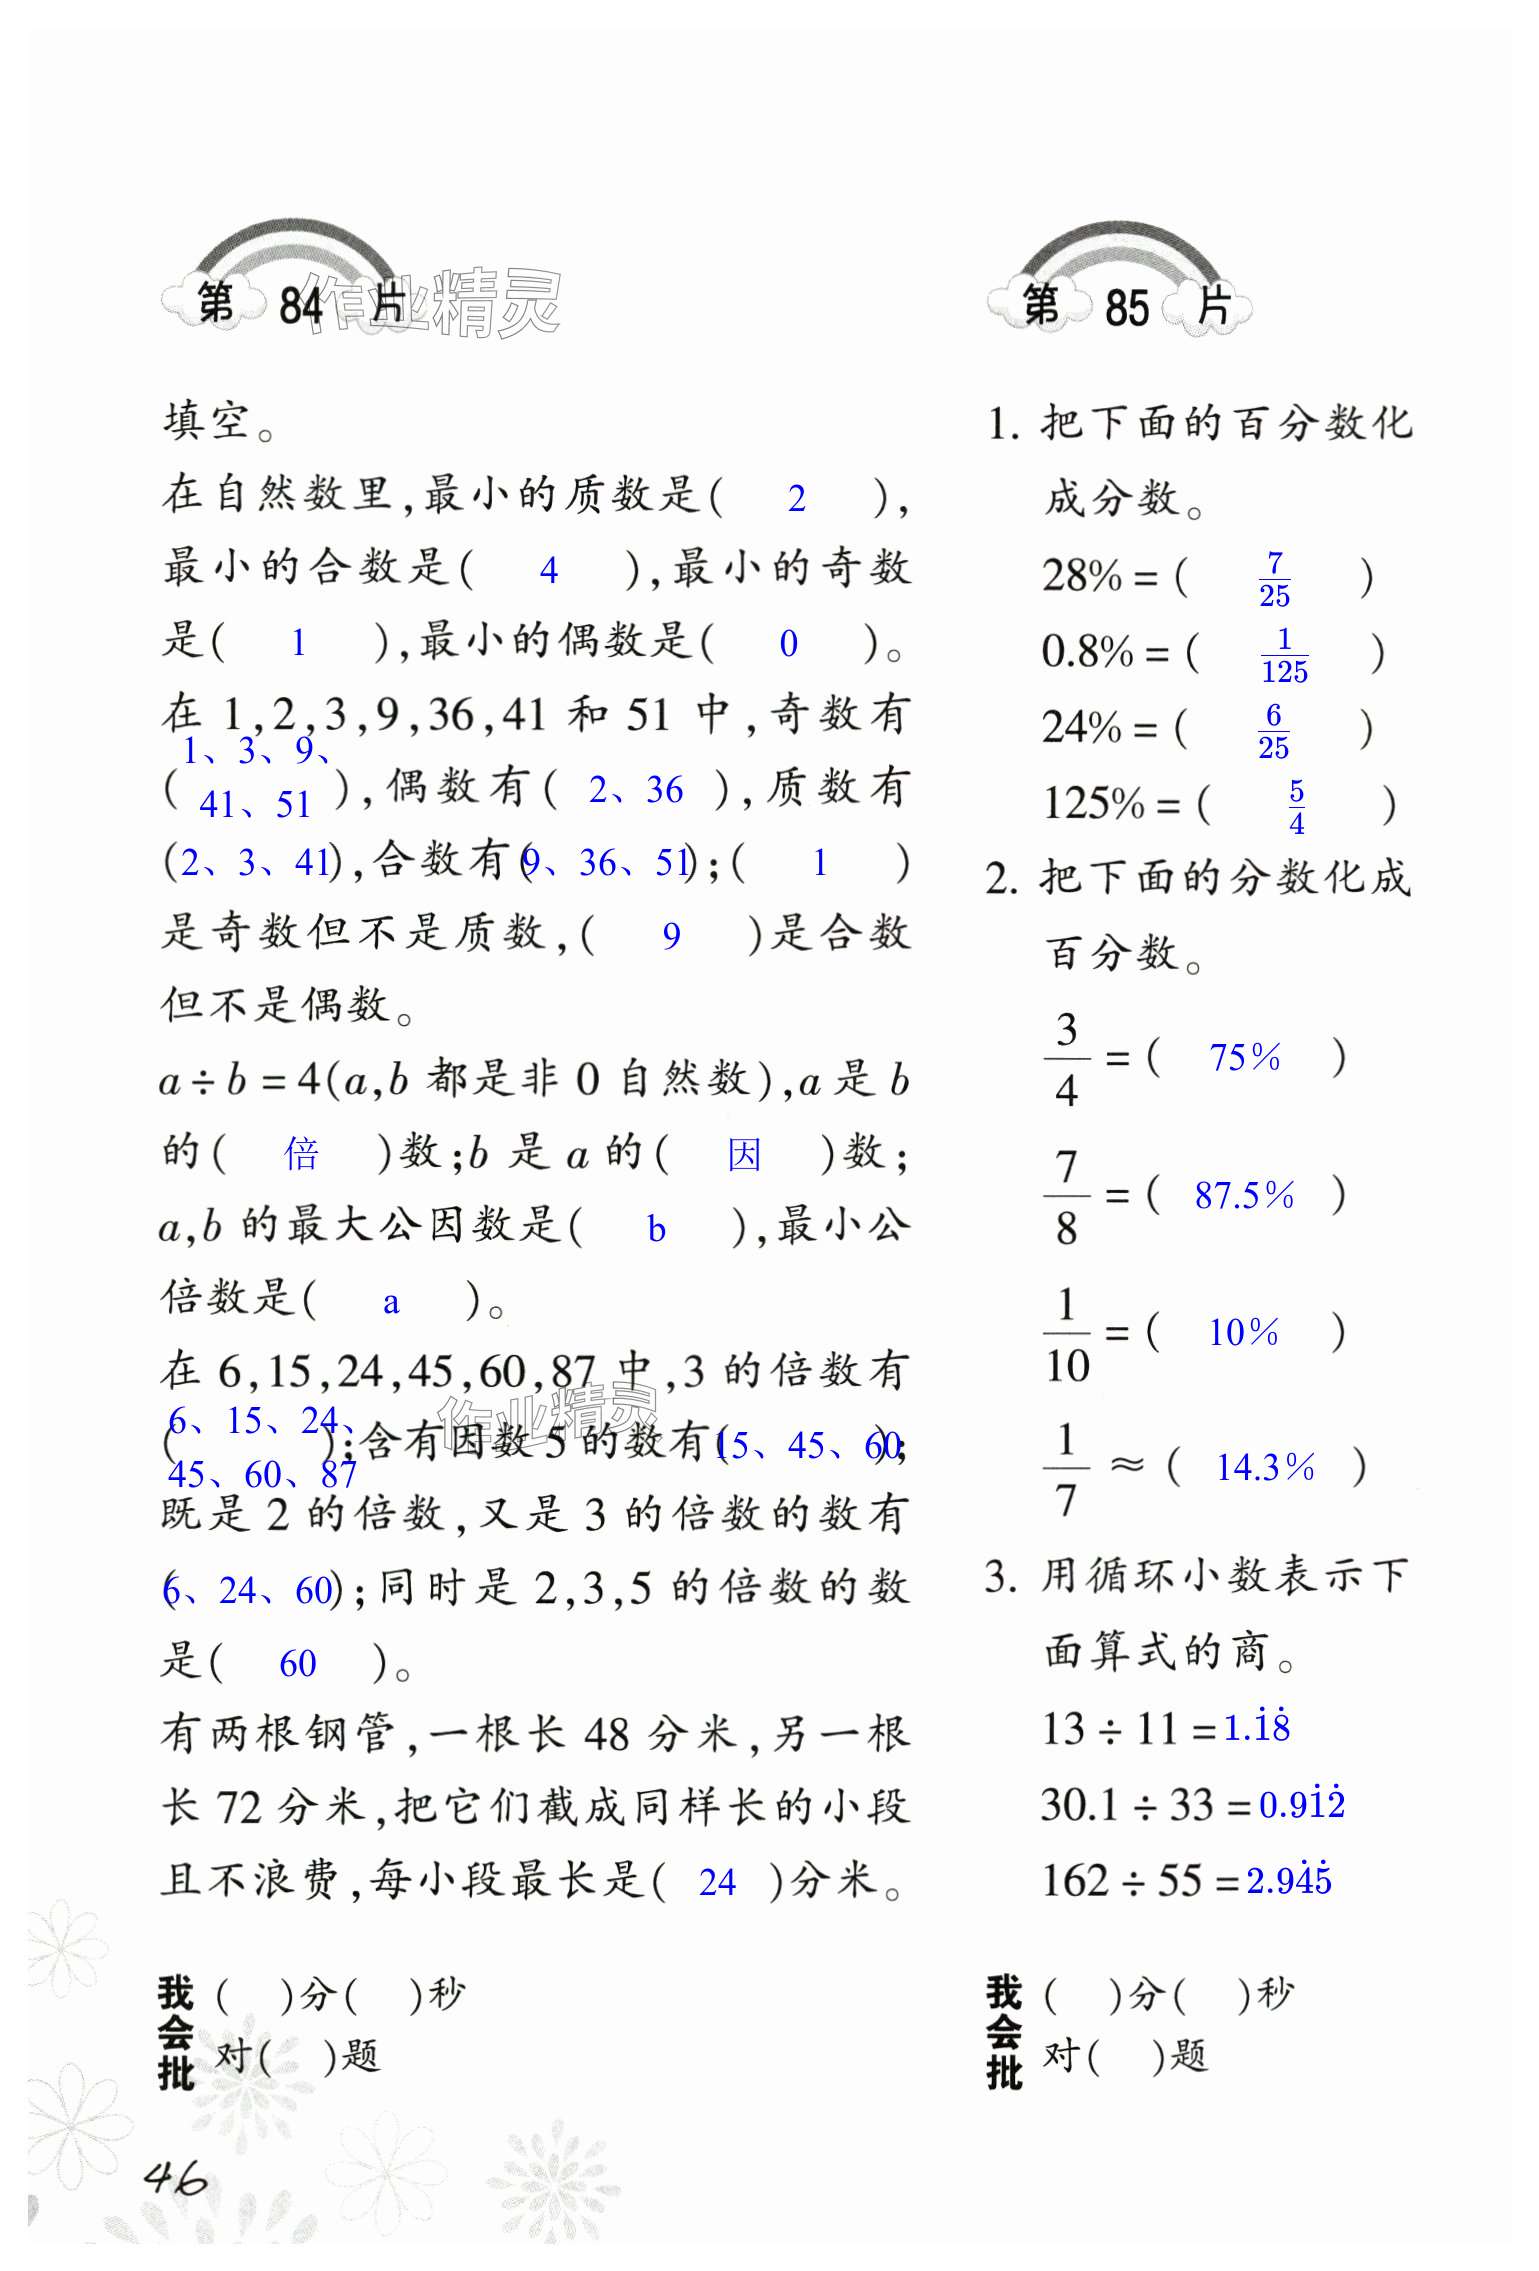 第 84 片
作业精灵
填空。
在自然数里,最小的质数是( 2 ),
最小的合数是( 4 ),最小的奇数
是( 1 ),最小的偶数是( 0 )。
在 1,2,3,9,36,41 和 51 中,奇数有
(1、3、9、
41、51),偶数有( 2、36 ),质数有
(2、3、41),合数有(9、36、51);( 1 )
是奇数但不是质数,( 9 )是合数
但不是偶数。
a÷b=4(a,b 都是非 0 自然数),a 是 b
的( 倍 )数;b 是 a 的( 因 )数;
a,b 的最大公因数是( b ),最小公
倍数是( a )。
在 6,15,24,45,60,87 中,3 的倍数有
作业精灵
(6、15、24、
45、60、87);含有因数 5 的数有(15、45、60);
既是 2 的倍数,又是 3 的倍数的数有
(6、24、60);同时是 2,3,5 的倍数的数
是( 60 )。
有两根钢管,一根长 48 分米,另一根
长 72 分米,把它们截成同样长的小段
且不浪费,每小段最长是( 24 )分米。
我会批
( )分( )秒
对( )题
46
第 85 片
1. 把下面的百分数化
成分数。
28%=( 7/25 )
0.8%=( 1/125 )
24%=( 6/25 )
125%=( 5/4 )
2. 把下面的分数化成
百分数。
3/4=( 75% )
7/8=( 87.5% )
1/10=( 10% )
1/7≈( 14.3% )
3. 用循环小数表示下
面算式的商。
13÷11=1.1̇8̇
30.1÷33=0.91̇2̇
162÷55=2.94̇5̇
我会批
( )分( )秒
对( )题